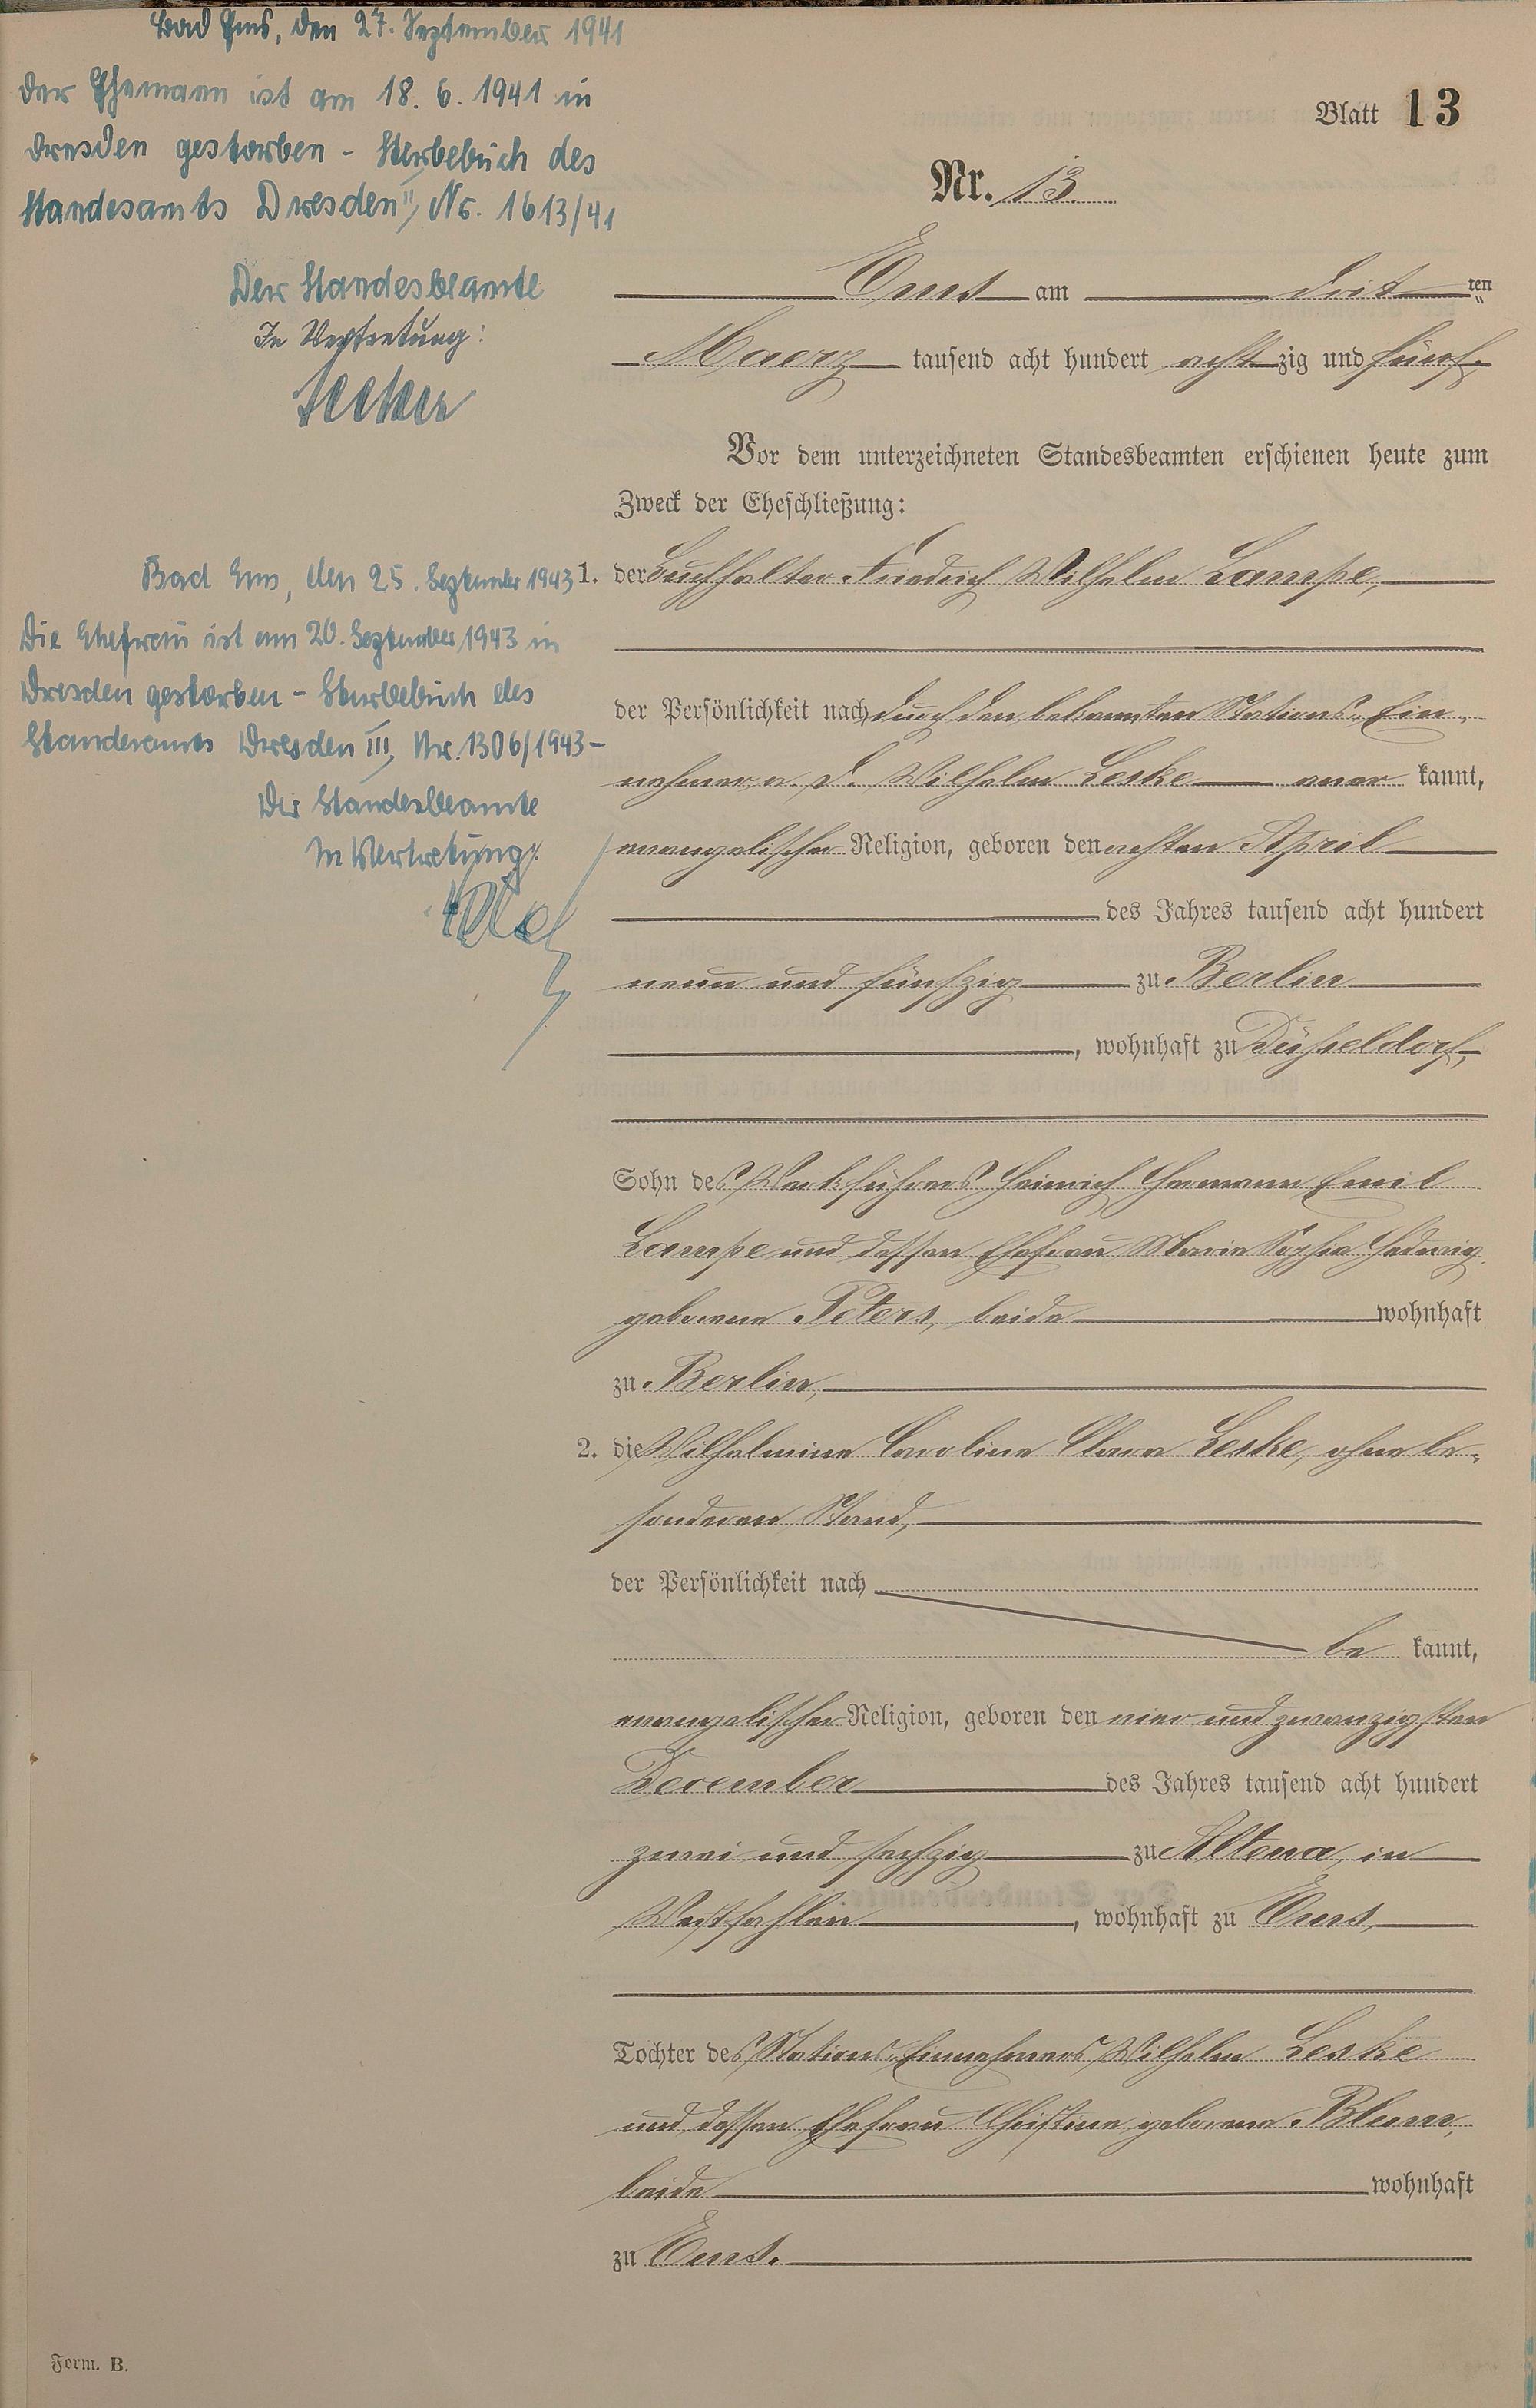 Bad Ems, den 27. September 1941
Der Ehemann ist am 18. 6. 1941 in
Dresden gestorben - Sterbebuch des
Standesamts Dresden II, Nr. 1613/41
Der Standesbeamte
In Vertretung:
Bad Ems, den 25. September 1943
Die Ehefrau ist am 20. September 1943 in
Dresden gestorben - Sterbebuch des
Standesamts Dresden III, Nr. 1306/1943 -
Der Standesbeamte
In Vertretung:
Blatt 13
Nr. 13.
Ems am dritten
Maerz tausend acht hundert achtzig und fünf.
Vor dem unterzeichneten Standesbeamten erschienen heute zum
Zweck der Eheschließung:
1. der Buchhalter Friedrich Wilhelm Lampe,
der Persönlichkeit nach durch den bekannten Stations-Ein-
nehmer a. D. Wilhelm Leske aner kannt,
evangelischer Religion, geboren den achten April
des Jahres tausend acht hundert
neun und fünfzig zu Berlin
, wohnhaft zu Düsseldorf,
Sohn des Werkführers Heinrich Hermann Emil
Lampe und dessen Ehefrau Marie Sophie Hedwig
geborene Peters, beide wohnhaft
zu Berlin,
2. die Wilhelmine Caroline Clara Leske, ohne be-
sonderen Stand,
der Persönlichkeit nach
be kannt,
evangelischer Religion, geboren den vier und zwanzigsten
December des Jahres tausend acht hundert
zwei und sechzig zu Altena, in
Westfahlen, wohnhaft zu Ems,
Tochter des Stations-Einnehmers Wilhelm Leske
und dessen Ehefrau Christine geborene Blum,
beide wohnhaft
zu Ems.
Form. B.